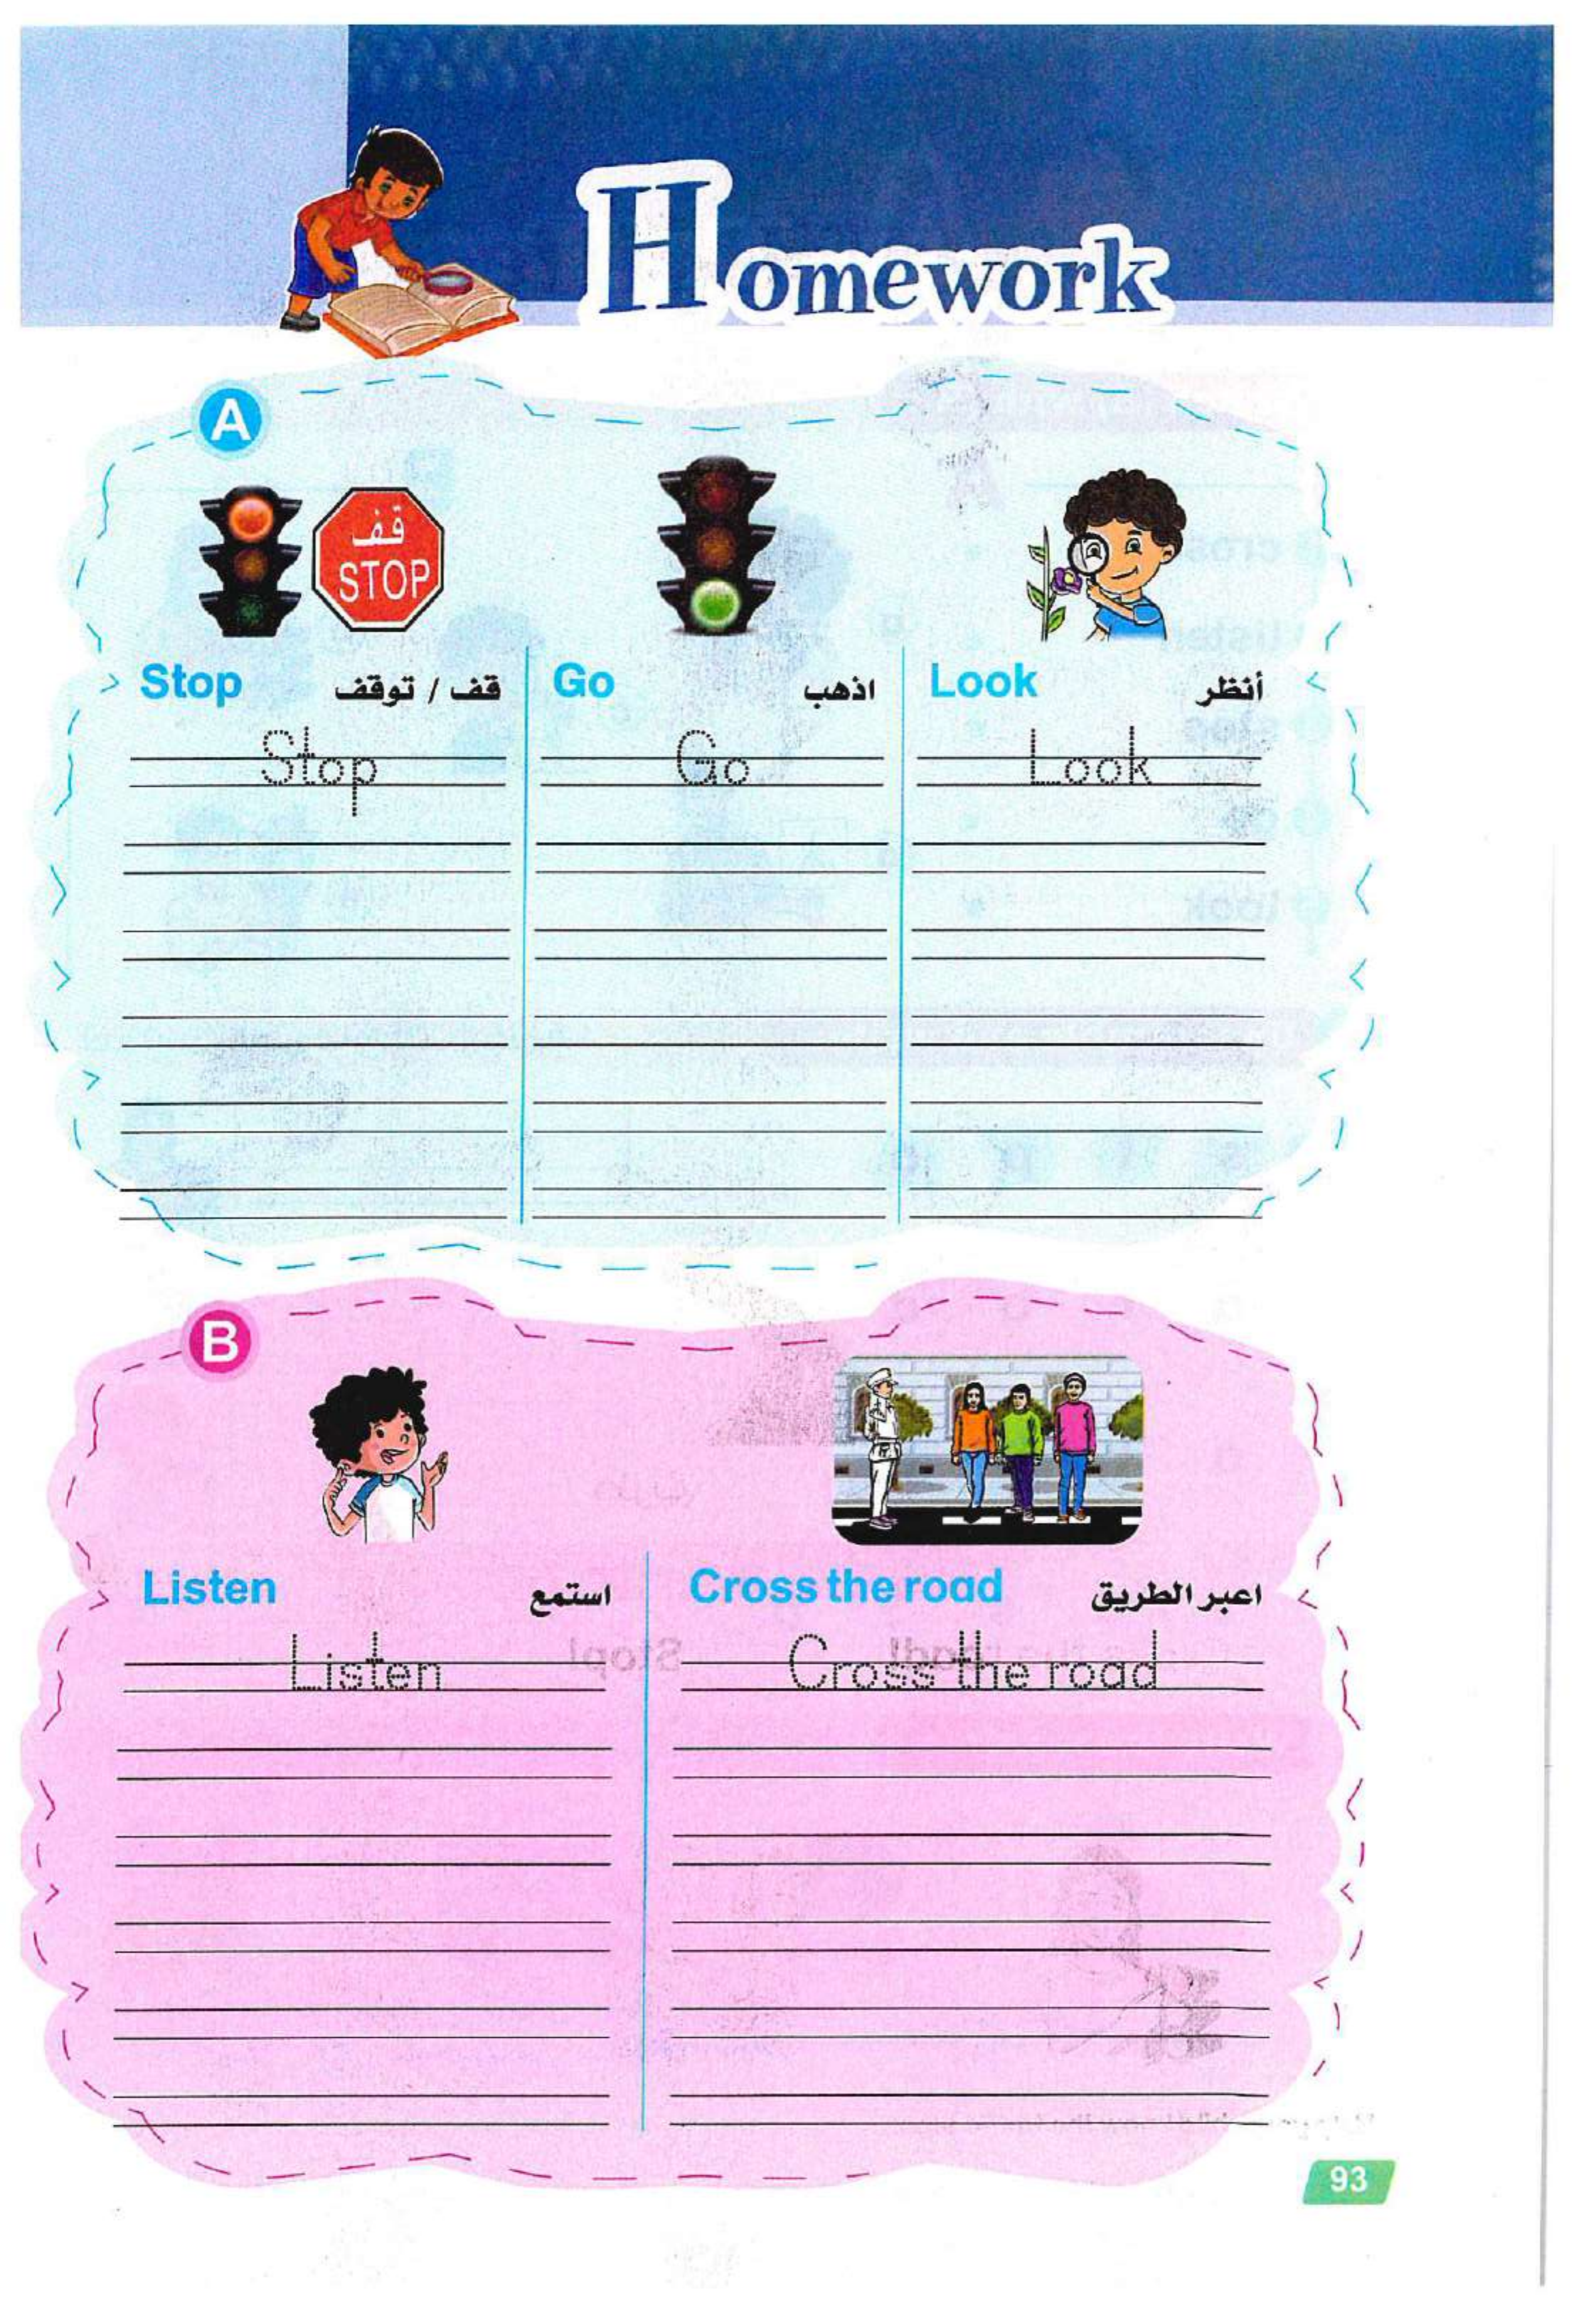 Homework
A
قف
STOP
Stop قف / توقف
Go اذهب
Look أنظر
Stop
Go
Look
B
Listen استمع
Cross the road اعبر الطريق
Listen
Cross the road
93